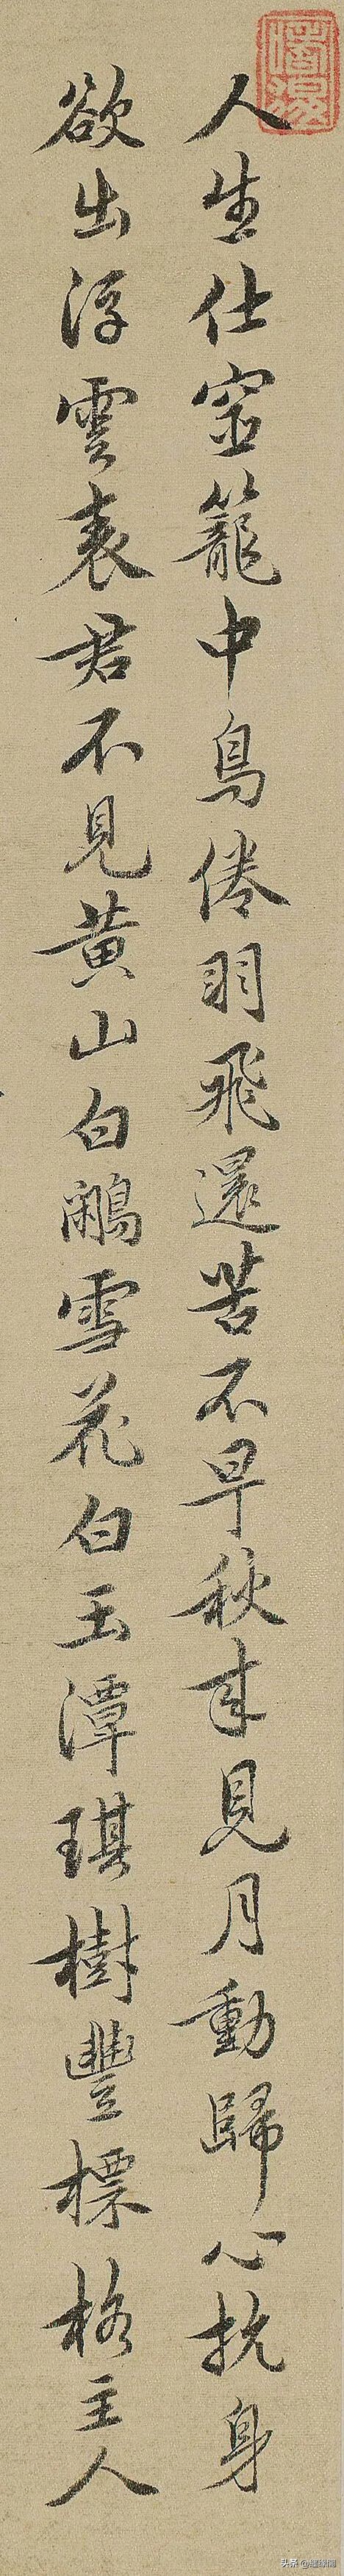 人生仕宦籠中鳥倦羽飛還苦不早秋来見月動歸心抗身
欲出浮雲表君不見黄山白鷴雪花白玉潭琪樹豐標格主人
头条